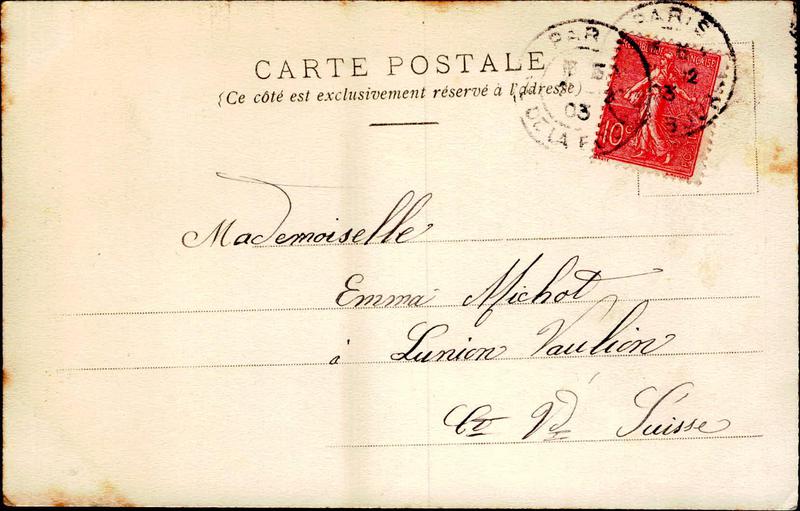 CARTE POSTALE
(Ce côté est exclusivement réservé à l'adresse)
PARIS
PARIS
03
10c
Mademoiselle
Emma Michot
à Lunion Vaulion
Ct Vd Suisse